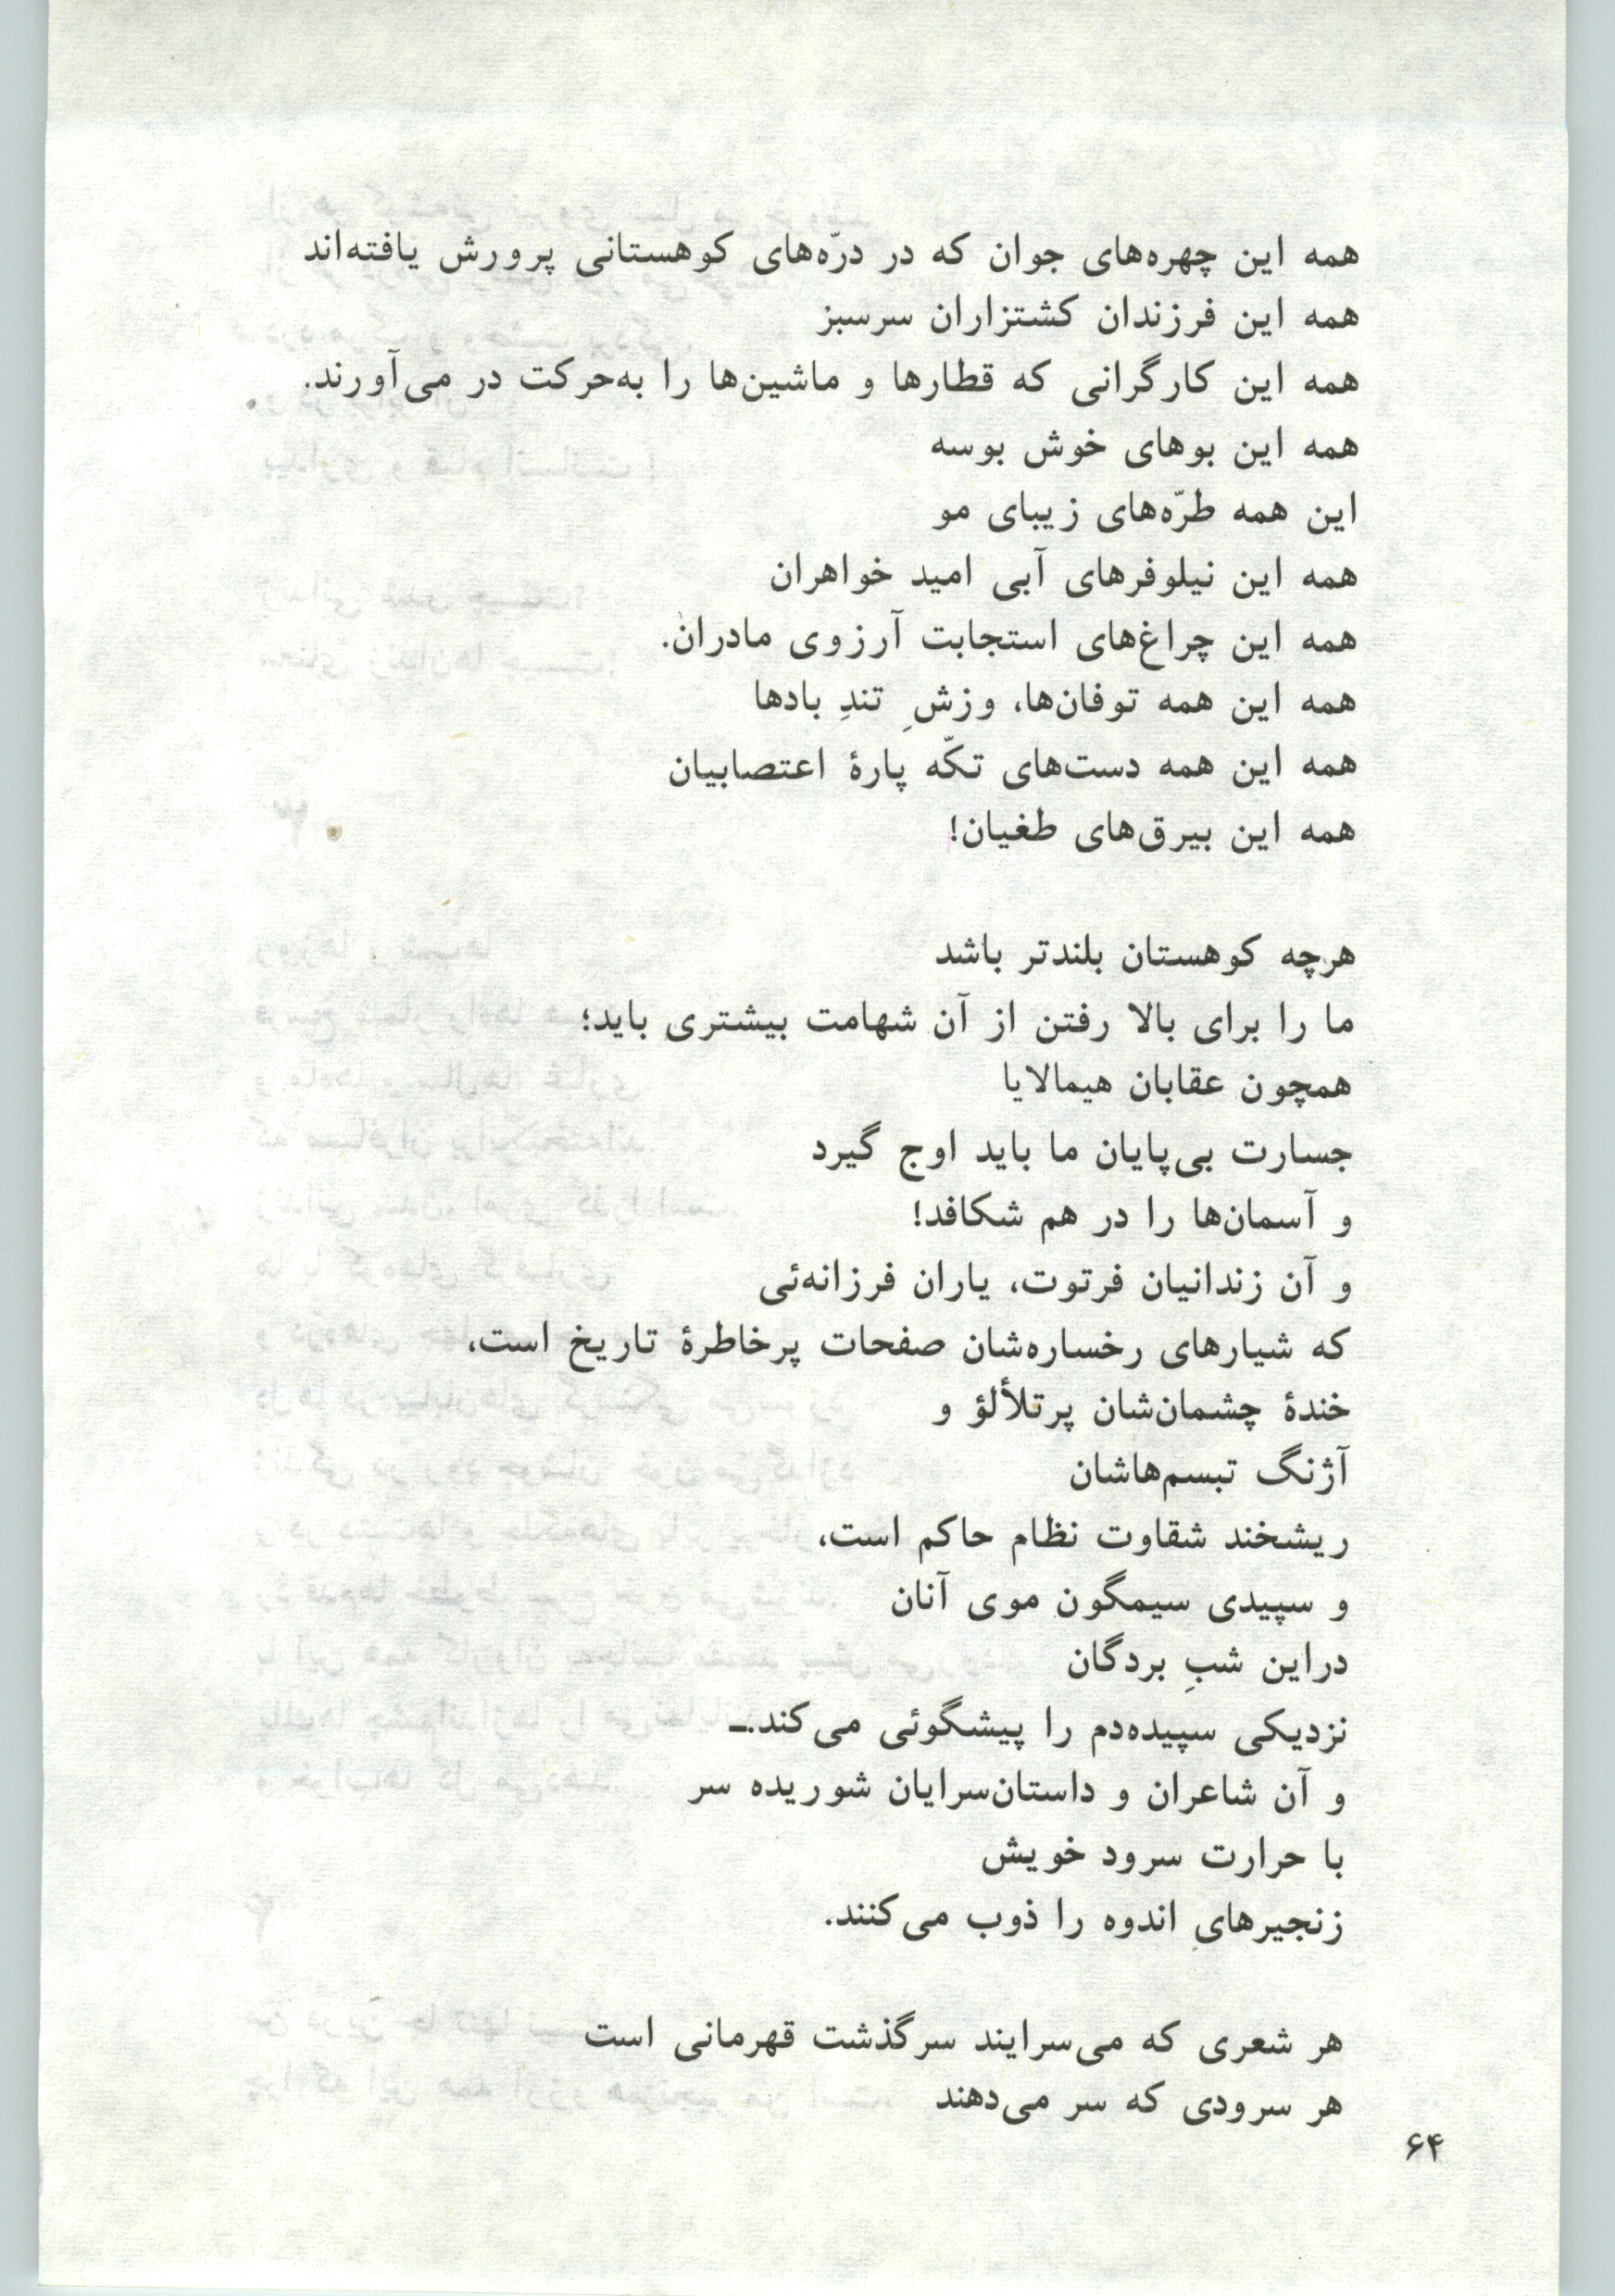 همه این چهره‌های جوان که در درّه‌های کوهستانی پرورش یافته‌اند
همه این فرزندان کشتزاران سرسبز
همه این کارگرانی که قطارها و ماشین‌ها را به‌حرکت در می‌آورند.
همه این بوهای خوش بوسه
این همه طرّه‌های زیبای مو
همه این نیلوفرهای آبی امید خواهران
همه این چراغ‌های استجابت آرزوی مادران.
همه این همه توفان‌ها، وزشِ تندِ بادها
همه این همه دست‌های تکّه پارهٔ اعتصابیان
همه این بیرق‌های طغیان!
هرچه کوهستان بلندتر باشد
ما را برای بالا رفتن از آن شهامت بیشتری باید؛
همچون عقابان هیمالایا
جسارت بی‌پایان ما باید اوج گیرد
و آسمان‌ها را در هم شکافد!
و آن زندانیان فرتوت، یاران فرزانه‌ئی
که شیارهای رخساره‌شان صفحات پرخاطرهٔ تاریخ است،
خندهٔ چشمان‌شان پرتلألؤ و
آژنگ تبسم‌هاشان
ریشخند شقاوت نظام حاکم است،
و سپیدی سیمگون موی آنان
دراین شبِ بردگان
نزدیکی سپیده‌دم را پیشگوئی می‌کند.ـ
و آن شاعران و داستان‌سرایان شوریده سر
با حرارت سرود خویش
زنجیرهایِ اندوه را ذوب می‌کنند.
هر شعری که می‌سرایند سرگذشت قهرمانی است
هر سرودی که سر می‌دهند
۶۴